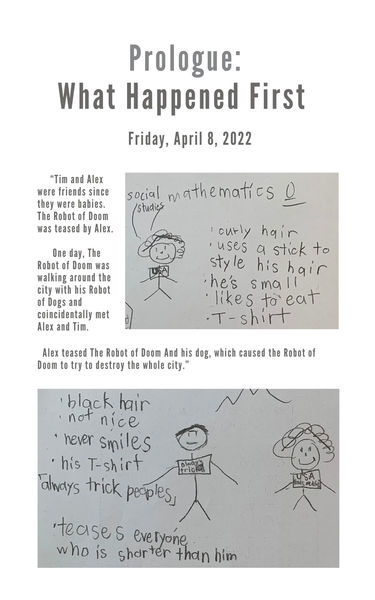 Prologue:
What Happened First
Friday, April 8, 2022
"Tim and Alex
were friends since
they were babies.
The Robot of Doom
was teased by Alex.
One day, The
Robot of Doom was
walking around the
city with his Robot
of Dogs and
coincidentally met
Alex and Tim.
social mathematics
studies
USA
· curly hair
· uses a stick to
style his hair
· he's small
· likes to eat
· T-shirt
Alex teased The Robot of Doom And his dog, which caused the Robot of
Doom to try to destroy the whole city."
· black hair
· not nice
· never smiles
· his T-shirt
"always trick peoples"
· teases everyone
who is shorter than him
always
USA